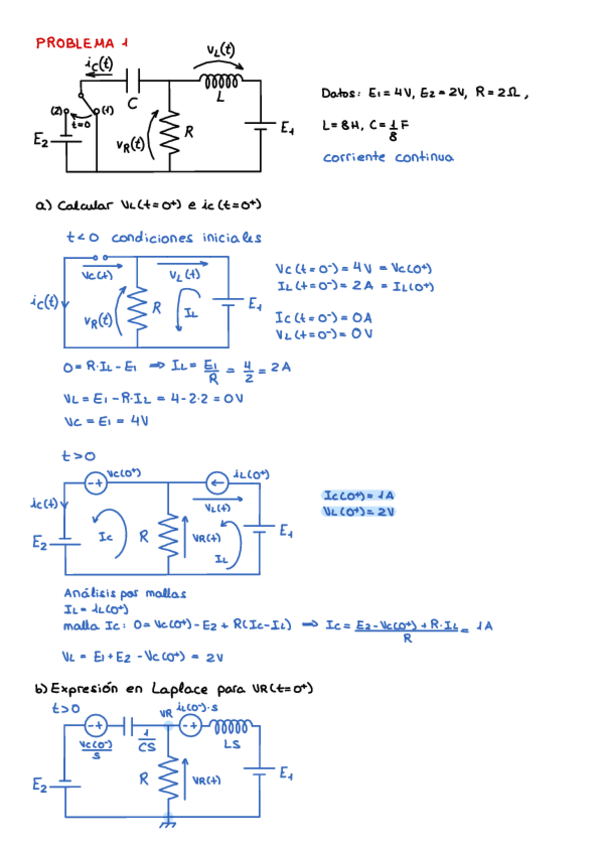 PROBLEMA 1
vL(t)
ic(t)
C
L
(2)
(1)
t=0
E2
vR(t)
R
E1
Datos: E1 = 4V, E2 = 2V, R = 2Ω,
L = 8H, C = 1/8 F
corriente continua
a) Calcular VL(t=0+) e ic(t=0+)
t<0 condiciones iniciales
vc(t)
vL(t)
ic(t)
vR(t)
R
IL
E1
Vc(t=0-) = 4V = Vc(0+)
IL(t=0-) = 2A = IL(0+)
Ic(t=0-) = 0A
VL(t=0-) = 0V
0 = R·IL - E1 ⇒ IL = E1/R = 4/2 = 2A
VL = E1 - R·IL = 4-2·2 = 0V
Vc = E1 = 4V
t>0
vc(0+)
iL(0+)
ic(t)
VL(t)
Ic
R
VR(t)
IL
E2
E1
Ic(0+) = 1A
VL(0+) = 2V
Análisis por mallas
IL = iL(0+)
malla Ic: 0 = Vc(0+) - E2 + R(Ic-IL) ⇒ Ic = E2-Vc(0+)+R·IL/R = 1A
VL = E1+E2 - Vc(0+) = 2V
b) Expresión en Laplace para VR(t=0+)
t>0
VR
iL(0-)·s
Vc(0-)/S
1/CS
LS
E2
R
VR(t)
E1